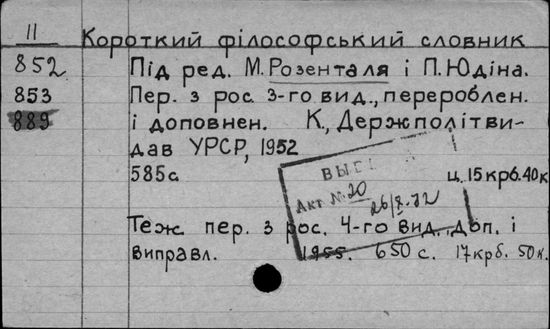 II
Короткий філософський словник
852
Під ред. М. Розенталя і П. Юдіна.
853
Пер. з рос. 3-го вид., перероблен.
889
і доповнен. К., Держполітви-
дав УРСР, 1952
585 с. ц. 15 крб. 40 к
Акт № 20
26/X-72
Теж пер. з рос. 4-го вид. доп. і
виправл. 1955. 650 с. 17 крб. 50 к.